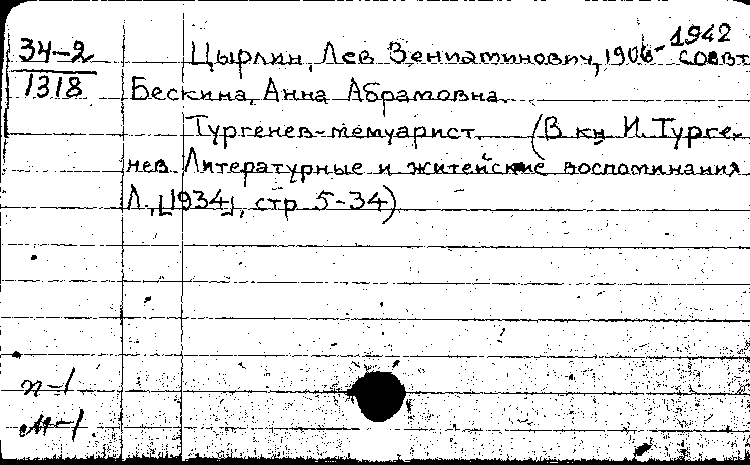 34-2
1318
Цырлин, Лев Вениаминович, 1906-1942 соавт
Бескина, Анна Абрамовна.
Тургенев-мемуарист. (В кн И. Турге-
нев Литературные и житейские воспоминания
Л., [1934], стр 5-34)
п-1
М-1